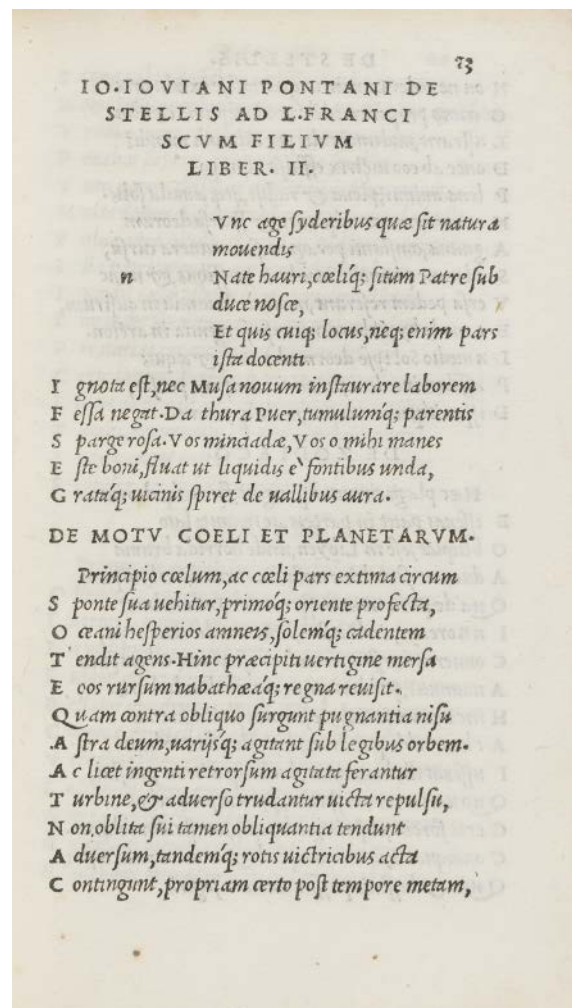 73
IO·IOVIANI PONTANI DE
STELLIS AD L·FRANCI
SCVM FILIVM
LIBER· II·
Vnc age syderibus quæ sit natura
mouendis
n Nate hauri, cœliq; situm Patre sub
duce nosce,
Et quis cuiq; locus, neq; enim pars
ista docenti
I gnota est, nec Musa nouum instaurare laborem
F essa negat· Da thura Puer, tumulumq́; parentis
S parge rosa· Vos minciadæ, Vos o mihi manes
E ste boni, fluat ut liquidis è fontibus unda,
G rataq́; uicinis spiret de uallibus aura·
DE MOTV COELI ET PLANETARVM·
Principio cœlum, ac cœli pars extima circum
S ponte sua uehitur, primoq́; oriente profecta,
O ceani hesperios amneis, solemq́; cadentem
T endit agens· Hinc præcipiti uertigine mersa
E oos rursum nabathæaq́; regna reuisit·
Q uam contra obliquo surgunt pugnantia nisu
A stra deum, uarijsq́; agitant sub legibus orbem·
A c licet ingenti retrorsum agitata ferantur
T urbine, & aduerso trudantur uicta repulsu,
N on oblita sui tamen obliquantia tendunt
A duersum, tandemq́; rotis uictricibus acta
C ontingunt, propriam certo post tempore metam,